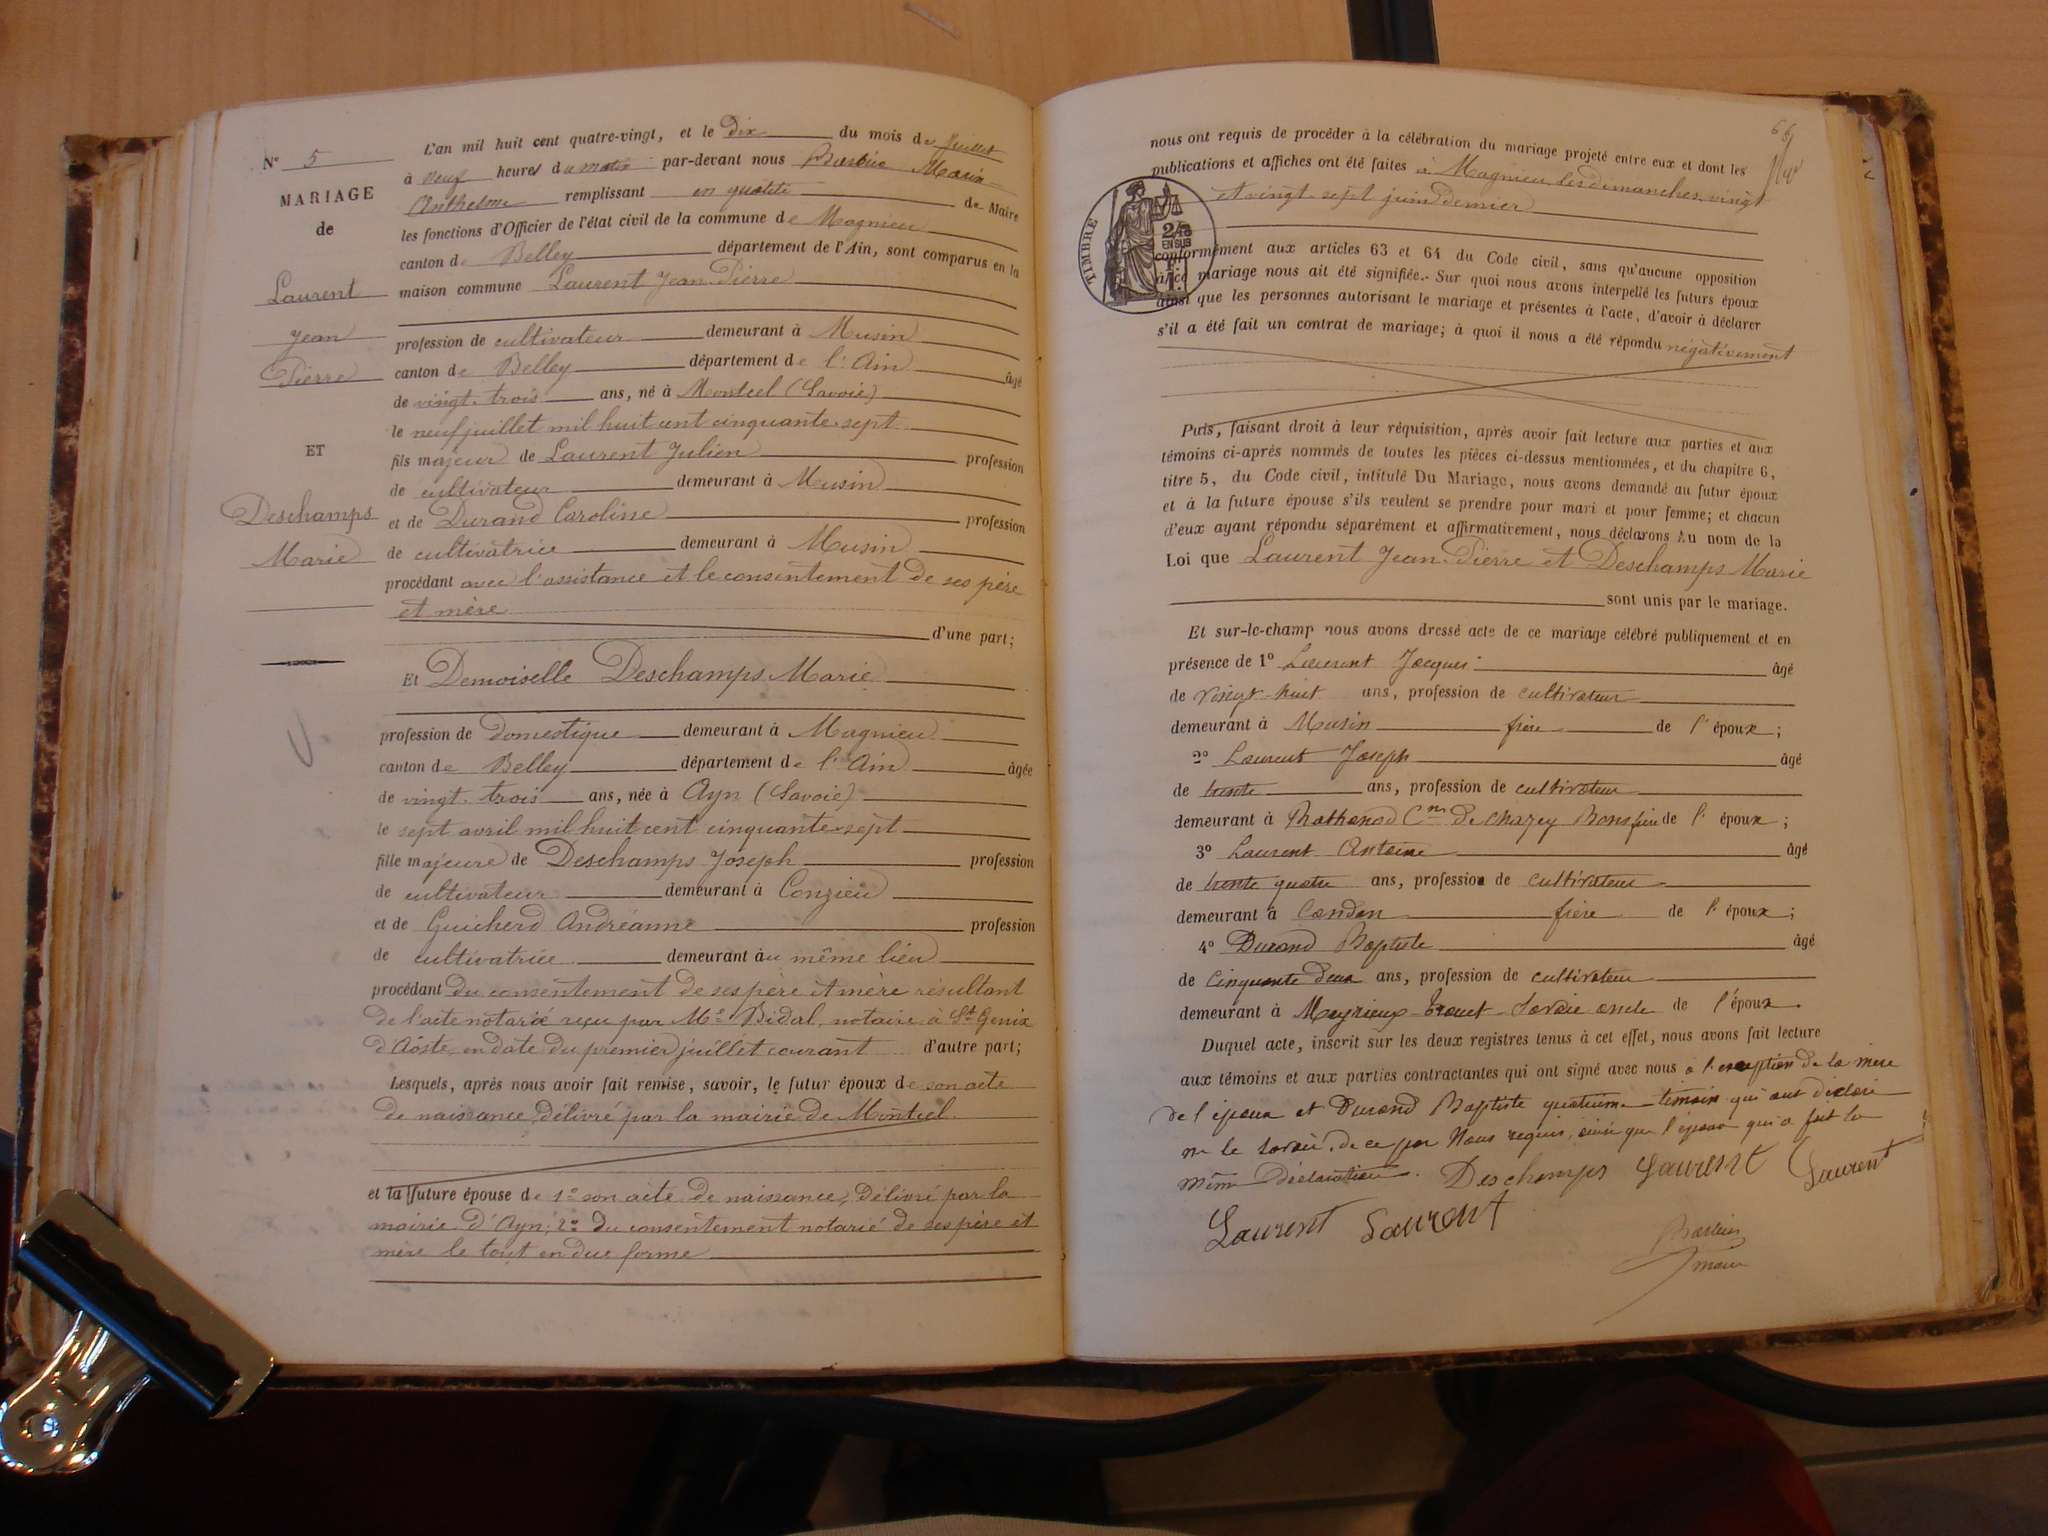 N° 5
MARIAGE
de
Laurent
Jean
Pierre
ET
Deschamps
Marie
L'an mil huit cent quatre-vingt, et le dix du mois de juillet
à neuf heures du matin par-devant nous Marin
Anthelme remplissant en qualité de Maire
les fonctions d'Officier de l'état civil de la commune de Magnieu
canton de Belley département de l'Ain, sont comparus en la
maison commune Laurent Jean-Pierre
profession de cultivateur demeurant à Musin
canton de Belley département de l'Ain âgé
de vingt-trois ans, né à Montcel (Savoie)
le neuf juillet mil huit cent cinquante-sept
fils majeur de Laurent Julien profession
de cultivateur demeurant à Musin
et de Durand Caroline profession
de cultivatrice demeurant à Musin
procédant avec l'assistance et le consentement de ses père
et mère
d'une part;
Et Demoiselle Deschamps Marie
profession de domestique demeurant à Magnieu
canton de Belley département de l'Ain âgée
de vingt-trois ans, née à Ayn (Savoie)
le sept avril mil huit cent cinquante-sept
fille majeure de Deschamps Joseph profession
de cultivateur demeurant à Conzieu
et de Guicherd Andréanne profession
de cultivatrice demeurant au même lieu
procédant du consentement de ses père et mère résultant
de l'acte notarié reçu par Me Bidal, notaire à St Genix
d'Aoste en date du premier juillet courant d'autre part;
Lesquels, après nous avoir fait remise, savoir, le futur époux de son acte
de naissance, délivré par la mairie de Montcel
et la future épouse de 1° son acte de naissance, délivré par la
mairie d'Ayn; 2° du consentement notarié de ses père et
mère le tout en due forme
nous ont requis de procéder à la célébration du mariage projeté entre eux et dont les
publications et affiches ont été faites à Magnieu les dimanches vingt
et vingt-sept juin dernier
TIMBRE
EN SUS
conformément aux articles 63 et 64 du Code civil, sans qu'aucune opposition
à ce mariage nous ait été signifiée.- Sur quoi nous avons interpellé les futurs époux
ainsi que les personnes autorisant le mariage et présentes à l'acte, d'avoir à déclarer
s'il a été fait un contrat de mariage; à quoi il nous a été répondu négativement
Puis, faisant droit à leur réquisition, après avoir fait lecture aux parties et aux
témoins ci-après nommés de toutes les pièces ci-dessus mentionnées, et du chapitre 6,
titre 5, du Code civil, intitulé Du Mariage, nous avons demandé au futur époux
et à la future épouse s'ils veulent se prendre pour mari et pour femme; et chacun
d'eux ayant répondu séparément et affirmativement, nous déclarons Au nom de la
Loi que Laurent Jean-Pierre et Deschamps Marie
sont unis par le mariage.
Et sur-le-champ nous avons dressé acte de ce mariage célébré publiquement et en
présence de 1° Laurent Jacques âgé
de vingt-huit ans, profession de cultivateur
demeurant à Musin frère de l'époux;
2° Laurent Joseph âgé
de trente ans, profession de cultivateur
demeurant à Rothonod Cne de Chazey Bons frère de l'époux;
3° Laurent Antoine âgé
de trente quatre ans, profession de cultivateur
demeurant à Condon frère de l'époux;
4° Durand Baptiste âgé
de cinquante deux ans, profession de cultivateur
demeurant à Meyrieux-Trouet-Savoie oncle de l'époux.
Duquel acte, inscrit sur les deux registres tenus à cet effet, nous avons fait lecture
aux témoins et aux parties contractantes qui ont signé avec nous à l'exception de la mère
de l'époux et Durand Baptiste quatrième témoin qui ont déclaré
ne le savoir, de ce par Nous requis, ainsi que l'époux qui a fait la
même déclaration. Deschamps Laurent Laurent
Laurent Laurent
maire